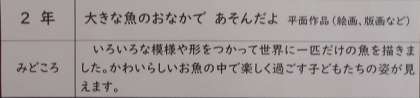 ２ 年 大きな魚のおなかで あそんだよ 平面作品（絵画、版画など）
みどころ
いろいろな模様や形をつかって世界に一匹だけの魚を描きま
した。かわいらしいお魚の中で楽しく過ごす子どもたちの姿が見
えます。